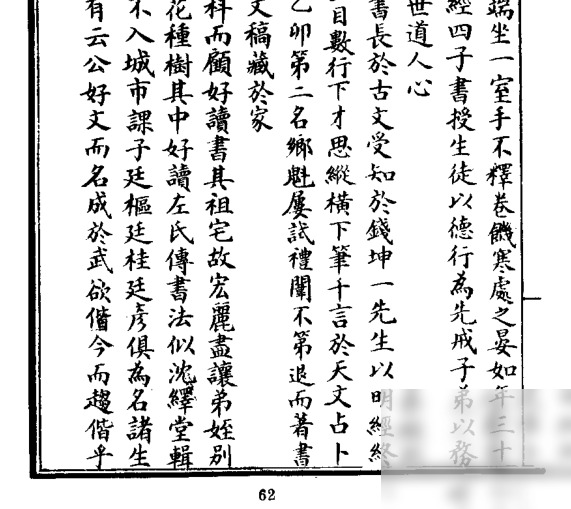 端坐一室手不釋卷饑寒處之晏如年三十
經四子書授生徒以德行為先戒子弟以務
世道人心
書長於古文受知於錢坤一先生以明經終
目數行下才思縱橫下筆千言於天文占卜
乙卯第二名鄉魁屢試禮闈不第退而著書
文稿藏於家
科而顧好讀書其祖宅故宏麗盡讓弟姪別
花種樹其中好讀左氏傳書法似沈繹堂輯
不入城市課子廷樞廷桂廷彥俱為名諸生
有云公好文而名成於武欲偕今而趨偕乎
62